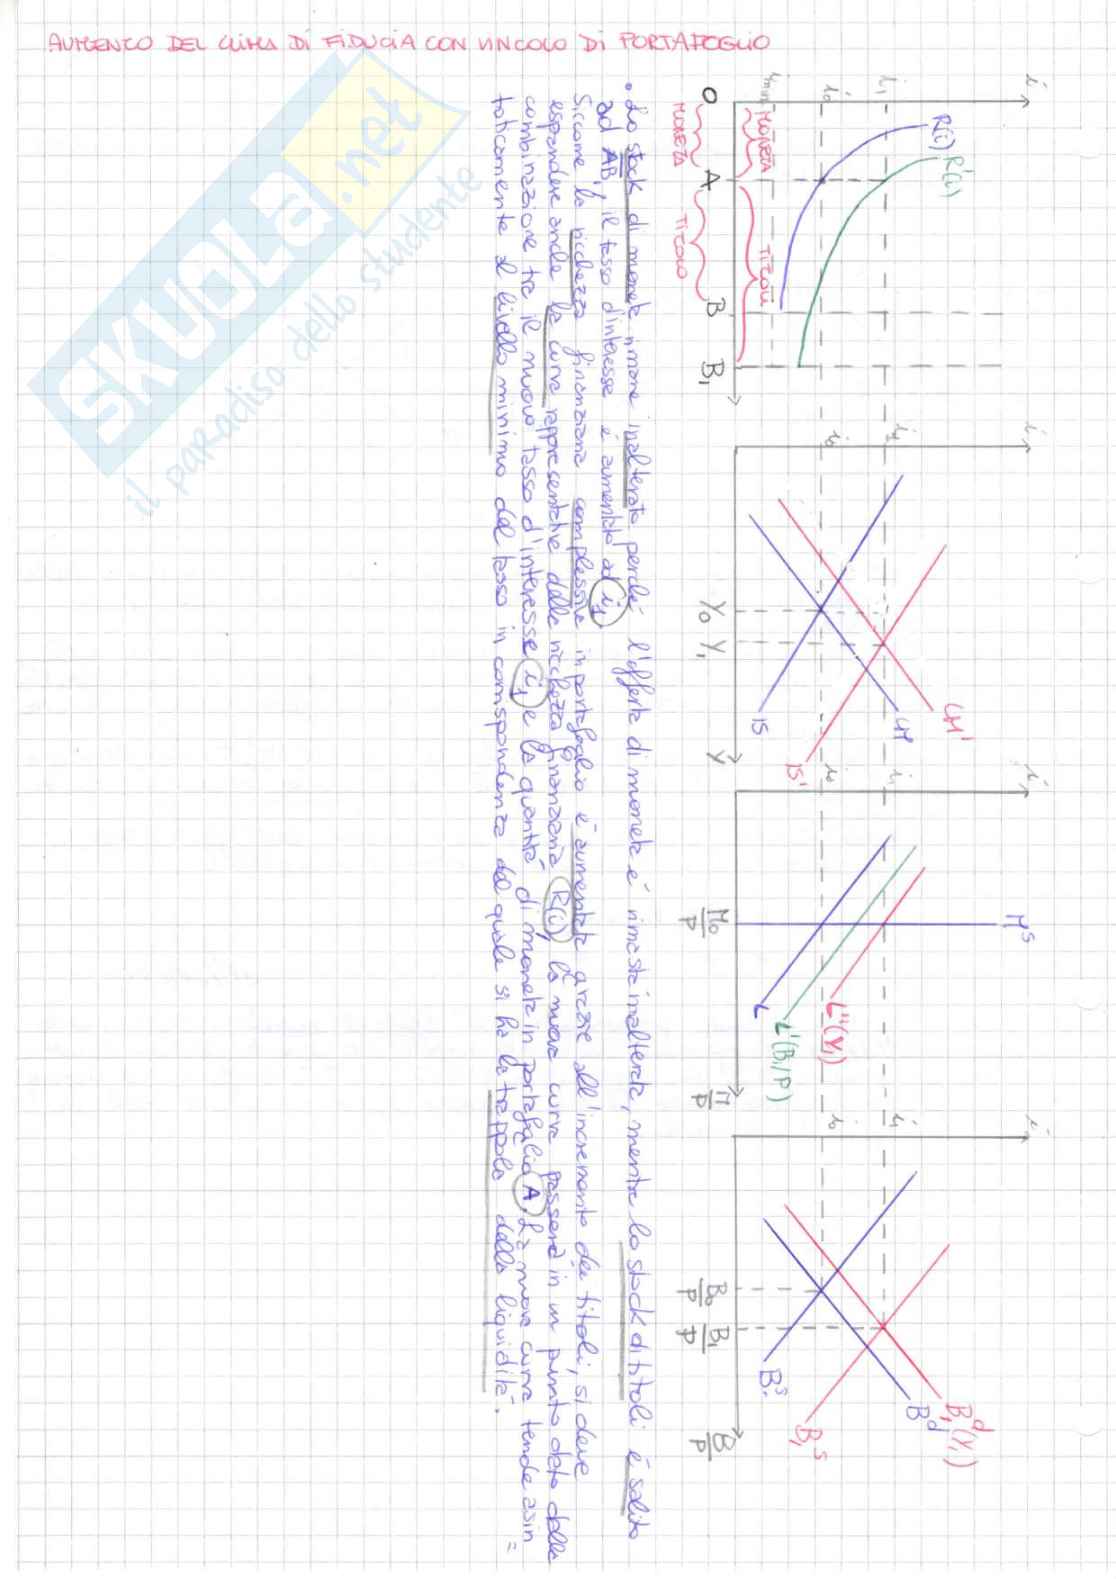 AUMENTO DEL CLIMA DI FIDUCIA CON VINCOLO DI PORTAFOGLIO
i
i₁
i₀
imin
R(i)
R'(i)
MONETA
TITOLI
O
A
B
B₁
MONETA
TITOLO
i
i₁
i₀
LM'
LM
IS
IS'
Y₀
Y₁
Y
i
i₁
i₀
Mˢ
L
L'(B₁/P)
L''(Y₁)
M₀/P
M/P
i
i₁
i₀
B₁ᵈ(Y₁)
Bᵈ
Bˢ
B₁ˢ
B₀/P
B₁/P
B/P
• Lo stock di moneta rimane inalterato perché l'offerta di moneta è rimasta inalterata, mentre lo stock di titoli è salito
ad AB₁, il tasso d'interesse è aumentato ad i₁.
Siccome la ricchezza finanziaria complessiva in portafoglio è aumentata grazie all'incremento dei titoli, si deve
espandere anche la curva rappresentativa della ricchezza finanziaria R(i), la nuova curva passerà in un punto dato dalla
combinazione tra il nuovo tasso d'interesse i₁ e la quantità di moneta in portafoglio A. La nuova curva tende asin=
toticamente al livello minimo del tasso in corrispondenza del quale si ha la trappola della liquidità.
SKUOLA.net
il paradiso dello studente